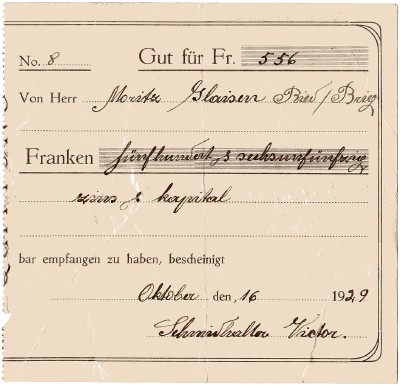 No. 8 Gut für Fr. 556
Von Herr Moritz Glaisen Bier / Brieg
Franken fünfhundert & sechsunfünfzig
zins & kapital
bar empfangen zu haben, bescheinigt
Oktober den, 16 1929
Schmidhalter Victor.